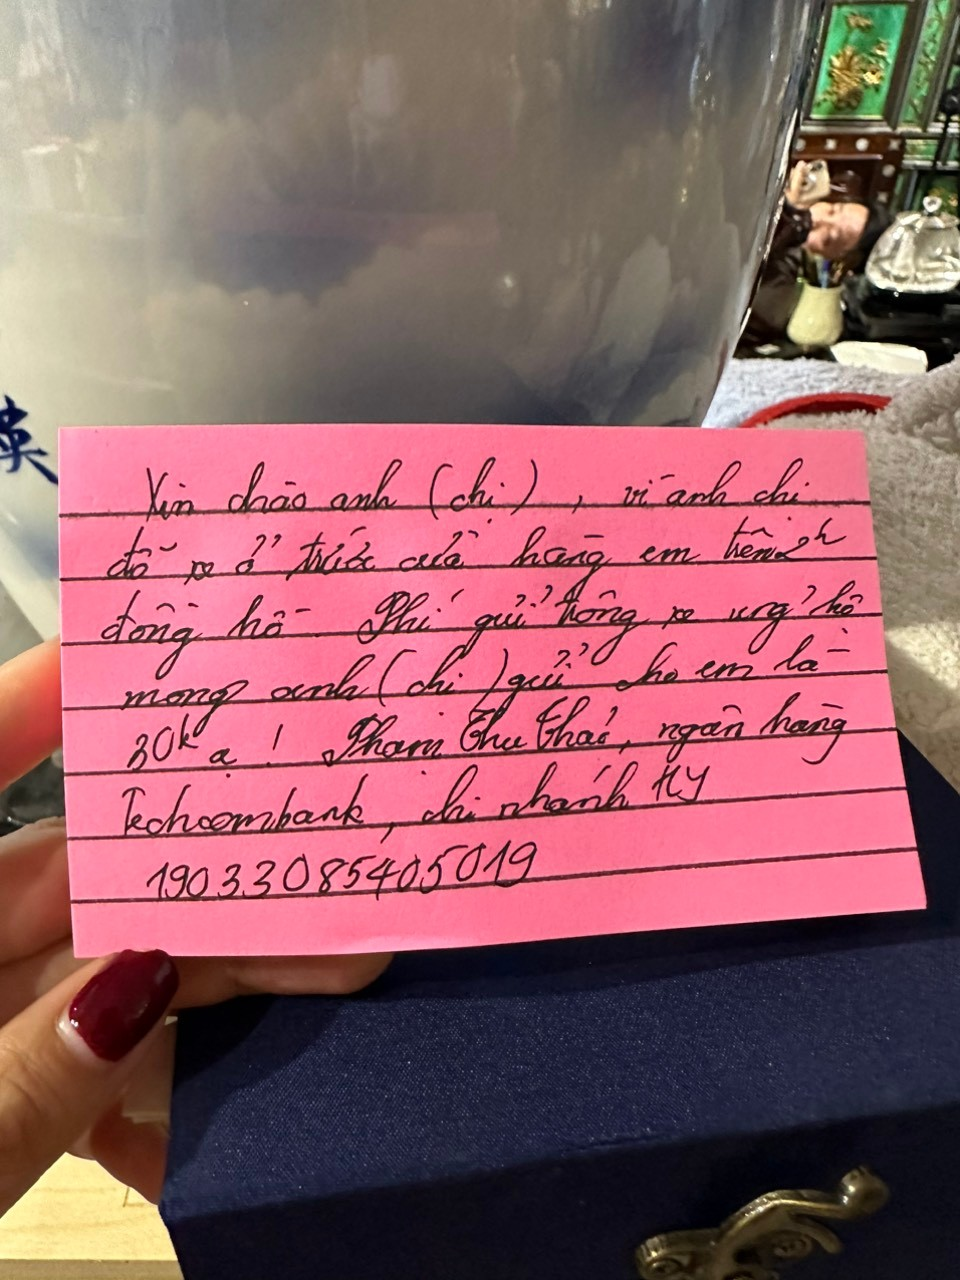 英
Xin chào anh (chị), vì anh chị
đỗ xe ở trước cửa hàng em trên 2h
đồng hồ. Phí gửi trông xe ủng hộ
mong anh (chị) gửi cho em là
30k ạ! Phạm Thu Thái, ngân hàng
Techcombank, chi nhánh HY
19033085405019